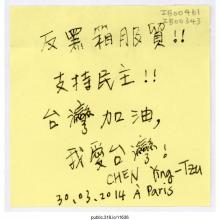 IB00461
IB00343
反黑箱服貿!!
支持民主!!
台灣加油,
我愛台灣!
CHEN Ying-Tzu
30.03.2014 À Paris
public.318.io/11636